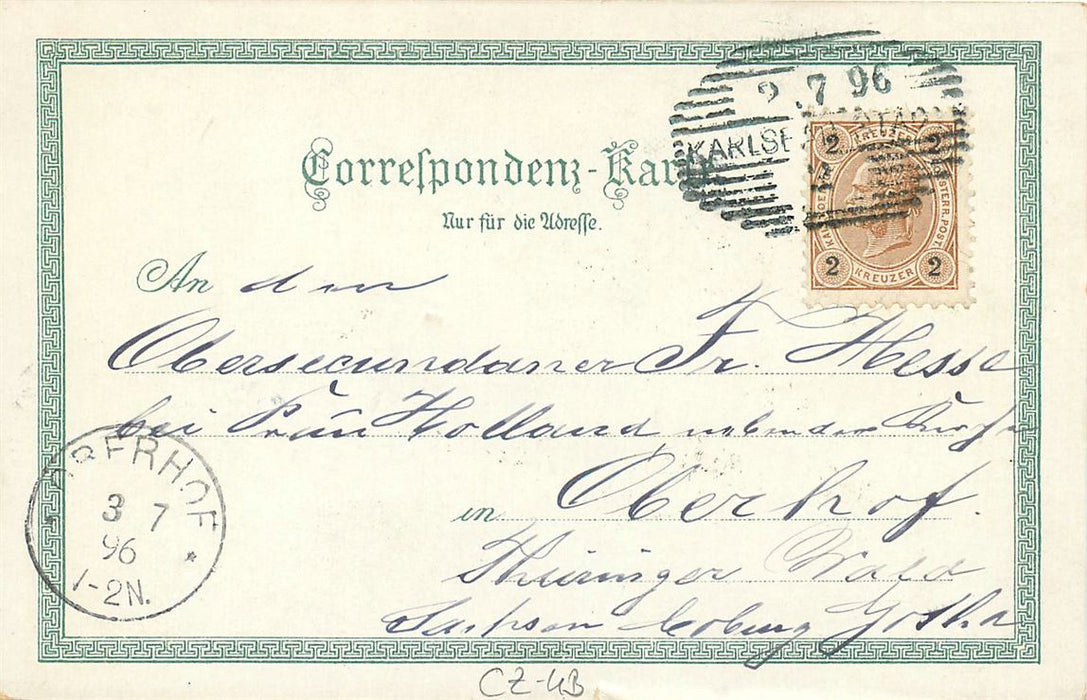 2 7 96
KARLSB STAD
Correspondenz-Karte
Nur für die Adresse.
2 KREUZER 2
KAIS. KOE OESTERR. POST.
2 KREUZER 2
An den
Obersecundaner Fr. Messe
bei Frau Holland neben der Kirche
in Oberhof.
Thüringer Wald
Sachsen Coburg Gotha
OBERHOF
3 7
96
1-2N. *
CZ-4B